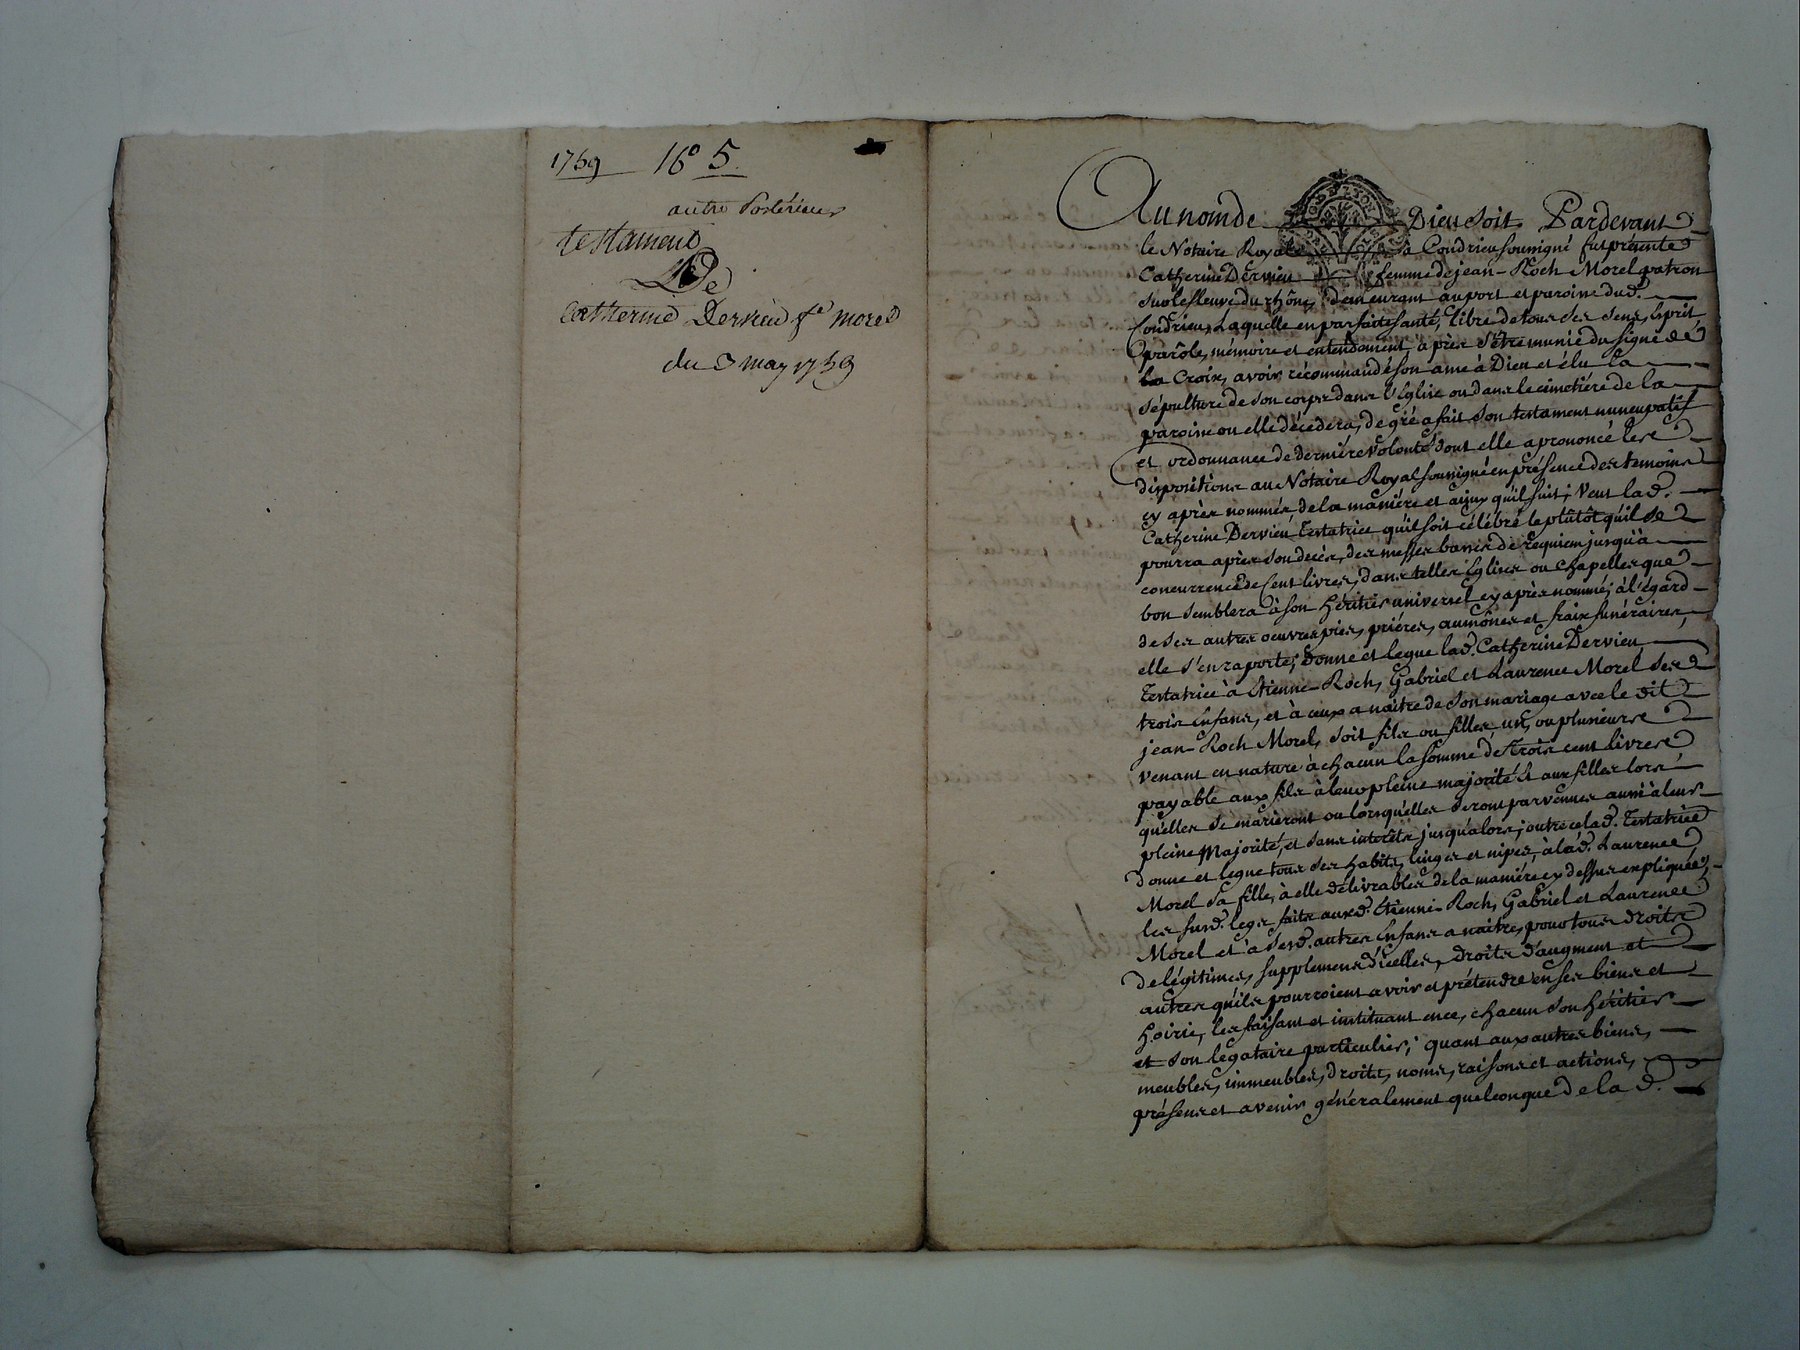 1759 16° 5
autre Postérieur
testament
De
Catherine Dervieu fe morel
du 3 may 1759
Au nom de Dieu soit Pardevant
le Notaire Royal à Condrieu soussigné fut présente
Catherine Dervieu femme de jean-Roch Morel patron
sur le fleuve du rhône, demeurant au port et paroisse dud.
Condrieu, Laquelle en parfaite santé, libre de tous ses sens, esprit
parôle, mémoire et entendement, après s'être munie du signe de
la Croix, avoir récommandé son ame à Dieu et élu la
sépulture de son corps dans l'Eglise ou dans le cimetiére de la
paroisse ou elle décedera, de gré a fait son testament nuncupatif
et ordonnance de derniére volonté dont elle a prononcé les
dispositions au Notaire Royal soussigné en présence des temoins
cy après nommés, de la maniére et ainsy qu'il suit; Veut lad.
Catherine Dervieu Testatrice qu'il soit célébré le plûtôt qu'il se
pourra après son decès, des messes basses de requiem jusqu'à
concurrence de Cent livres, dans telles Eglises ou Chapelles que
bon semblera à son héritier universel cy après nommé; à l'égard
de ses autres oeuvres pies, priéres, aumônes et fraix funéraires,
elle s'en raporte; Donne et legue lad. Catherine Dervieu
Testatrice à Etienne-Roch, Gabriel et Laurence Morel ses
trois Enfans, et à ceux a naitre de son mariage avec le dit
jean-Roch Morel, soit fils ou filles, un, ou plusieurs
venant en nature à chacun la somme de trois cent livres
payable aux fils à leur pleine majorité & aux filles lors
qu'elles se marieront ou lorsqu'elles seront parvenues aussi à leur
pleine Majorité, et sans interêts jusqu'alors; outre ce lad. Testatrice
donne et legue tous ses habits, linges et nipes, à lad. Laurence
Morel sa fille, à elle délivrables de la maniére cy dessus expliquée,
les susd. legs faits auxd. Etienne-Roch, Gabriel et Laurence
Morel et à sesd. autres Enfans a naitre, pour tous droits
de légitimes, supplemens d'icelles, droits d'augment et
autres qu'ils pourroient avoir et prétendre en ses biens et
hoirie, les faisant et instituant en ce, chacun son héritier
et son legataire particulier; quant aux autres biens,
meubles, immeubles, droits, noms, raisons et actions,
présens et avenir généralement quelconque de la d.